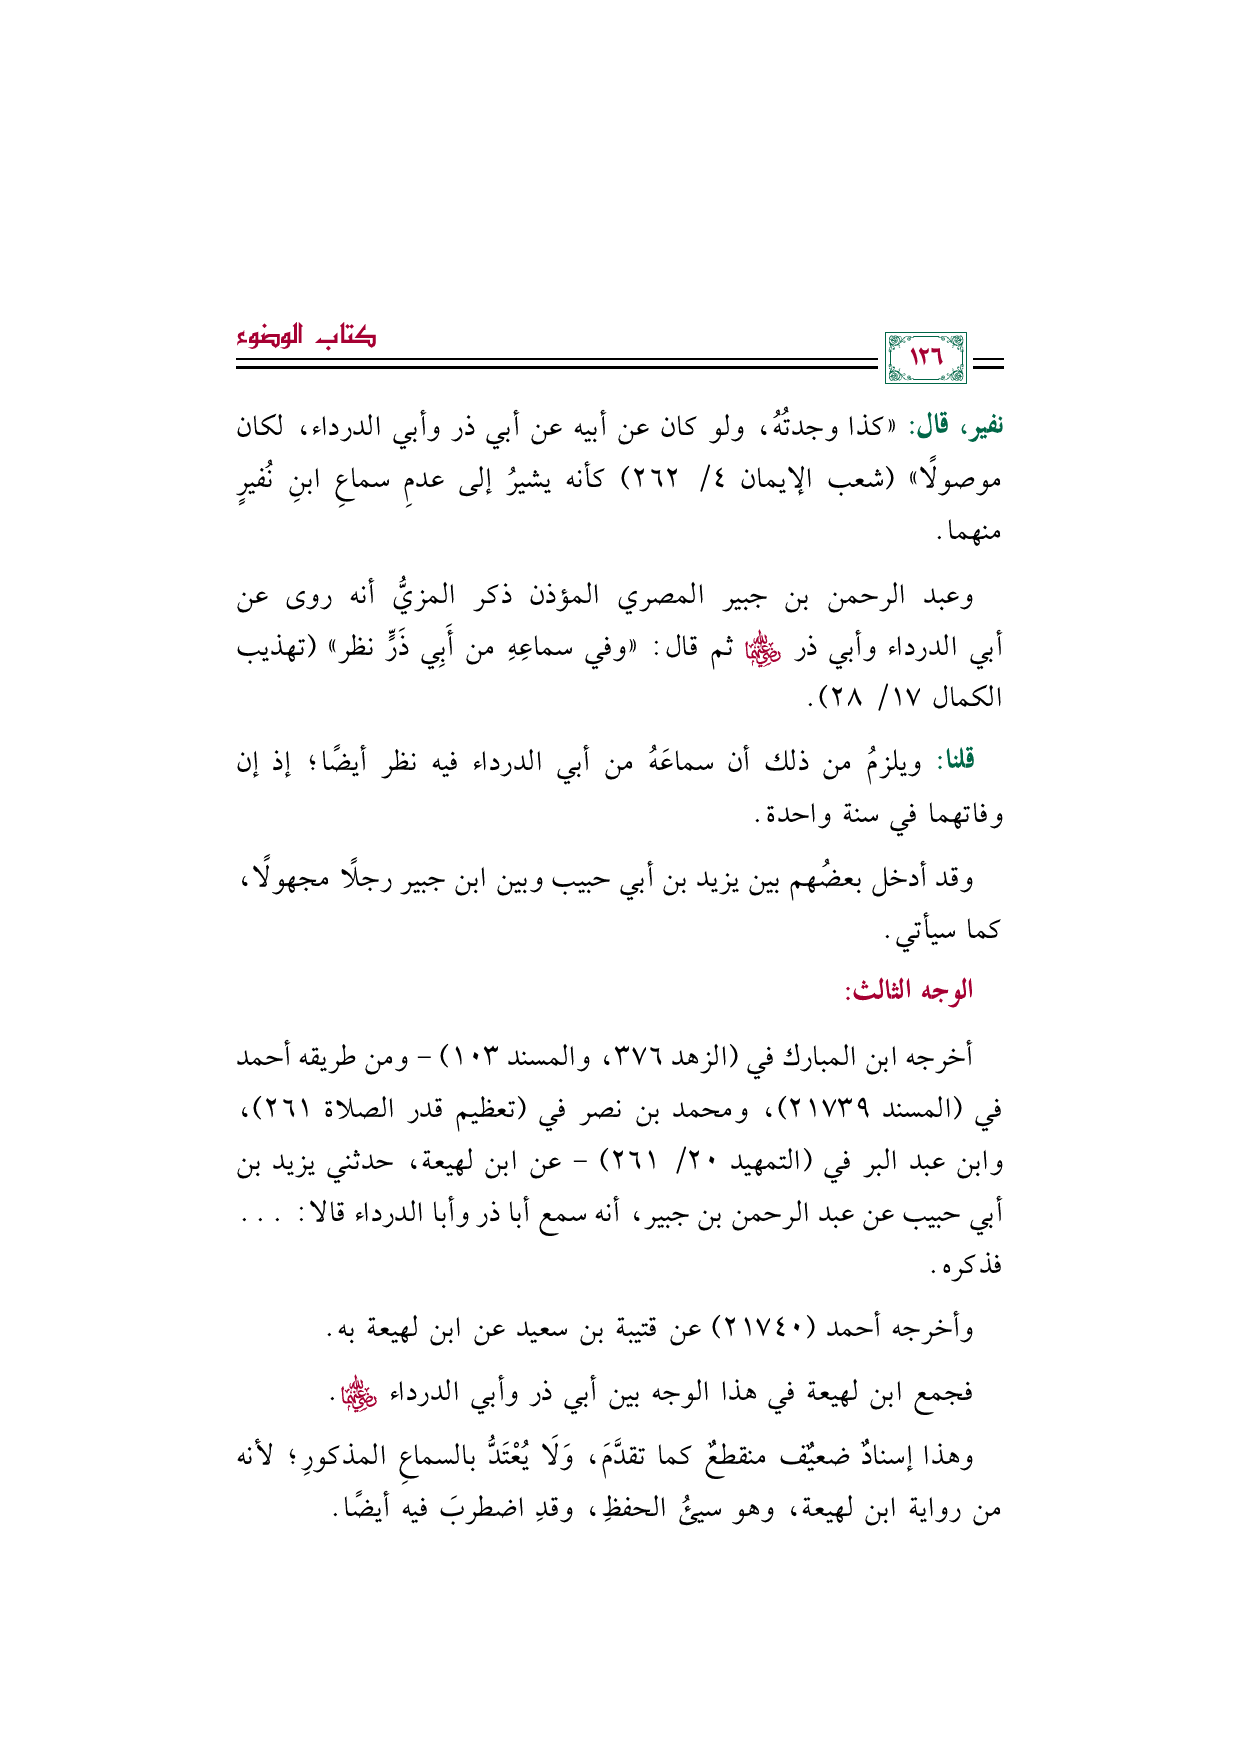 كتاب الوضوء
١٢٦
نفير، قال: «كذا وجدتُهُ، ولو كان عن أبيه عن أبي ذر وأبي الدرداء، لكان
موصولًا» (شعب الإيمان ٤/ ٢٦٢) كأنه يشيرُ إلى عدمِ سماعِ ابنِ نُفيرٍ
منهما.
وعبد الرحمن بن جبير المصري المؤذن ذكر المزيُّ أنه روى عن
أبي الدرداء وأبي ذر رضي الله عنهما ثم قال: «وفي سماعِهِ من أَبِي ذَرٍّ نظر» (تهذيب
الكمال ١٧/ ٢٨).
قلنا: ويلزمُ من ذلك أن سماعَهُ من أبي الدرداء فيه نظر أيضًا؛ إذ إن
وفاتهما في سنة واحدة.
وقد أدخل بعضُهم بين يزيد بن أبي حبيب وبين ابن جبير رجلًا مجهولًا،
كما سيأتي.
الوجه الثالث:
أخرجه ابن المبارك في (الزهد ٣٧٦، والمسند ١٠٣) – ومن طريقه أحمد
في (المسند ٢١٧٣٩)، ومحمد بن نصر في (تعظيم قدر الصلاة ٢٦١)،
وابن عبد البر في (التمهيد ٢٠/ ٢٦١) – عن ابن لهيعة، حدثني يزيد بن
أبي حبيب عن عبد الرحمن بن جبير، أنه سمع أبا ذر وأبا الدرداء قالا: ...
فذكره.
وأخرجه أحمد (٢١٧٤٠) عن قتيبة بن سعيد عن ابن لهيعة به.
فجمع ابن لهيعة في هذا الوجه بين أبي ذر وأبي الدرداء رضي الله عنهما.
وهذا إسنادٌ ضعيٌف منقطعٌ كما تقدَّمَ، وَلَا يُعْتَدُّ بالسماعِ المذكورِ؛ لأنه
من رواية ابن لهيعة، وهو سيئُ الحفظِ، وقدِ اضطربَ فيه أيضًا.